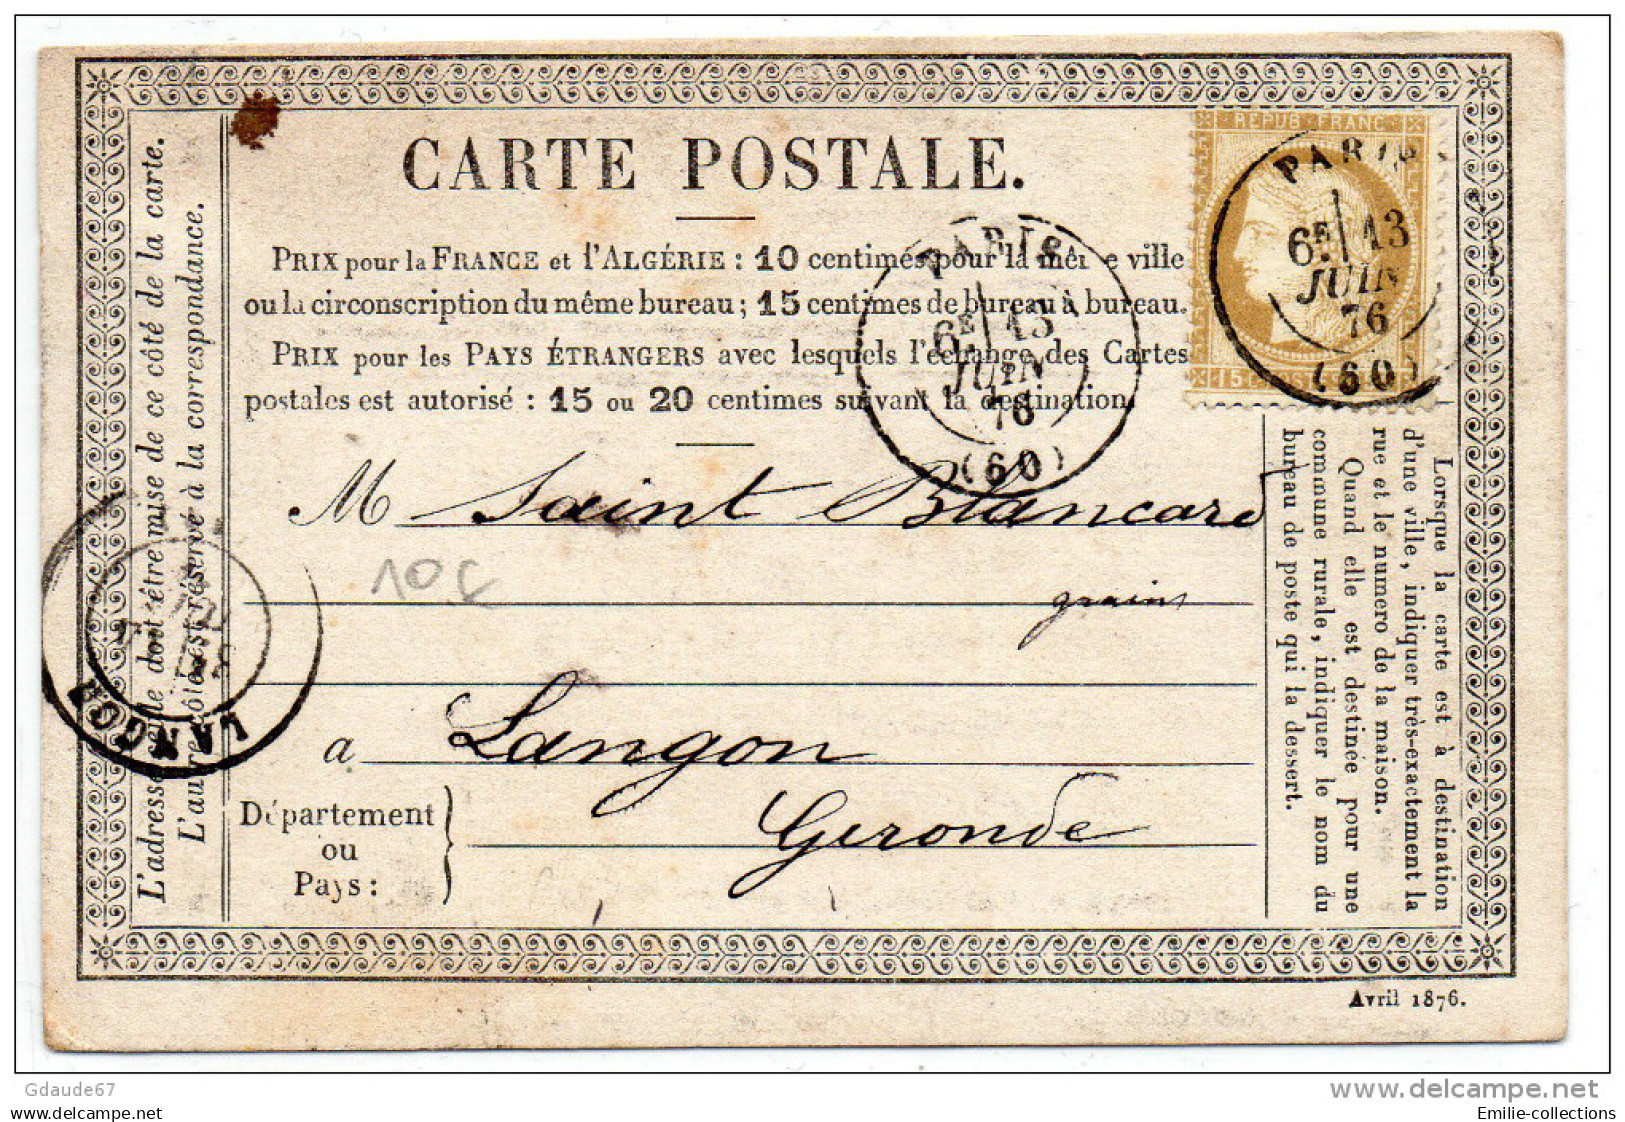 CARTE POSTALE.
PRIX pour la FRANCE et l'ALGÉRIE : 10 centimes pour la même ville
ou la circonscription du même bureau ; 15 centimes de bureau à bureau.
PRIX pour les PAYS ÉTRANGERS avec lesquels l'échange des Cartes
postales est autorisé : 15 ou 20 centimes suivant la destination.
REPUB FRANC
PARIS
6E 13
JUIN
76
(60)
PARIS
6E 13
JUIN
76
(60)
M Saint Blancard
10 €
grains
a Langon
Département
ou
Pays :
Gironde
L'adresse seule doit être mise de ce côté de la carte.
L'autre côté est réservé à la correspondance.
LANGON
Lorsque la carte est à destination
d'une ville, indiquer très-exactement la
rue et le numero de la maison.
Quand elle est destinée pour une
commune rurale, indiquer le nom du
bureau de poste qui la dessert.
Avril 1876.
Gdaude67
delcampe.net
Copyright
Emilie-collections